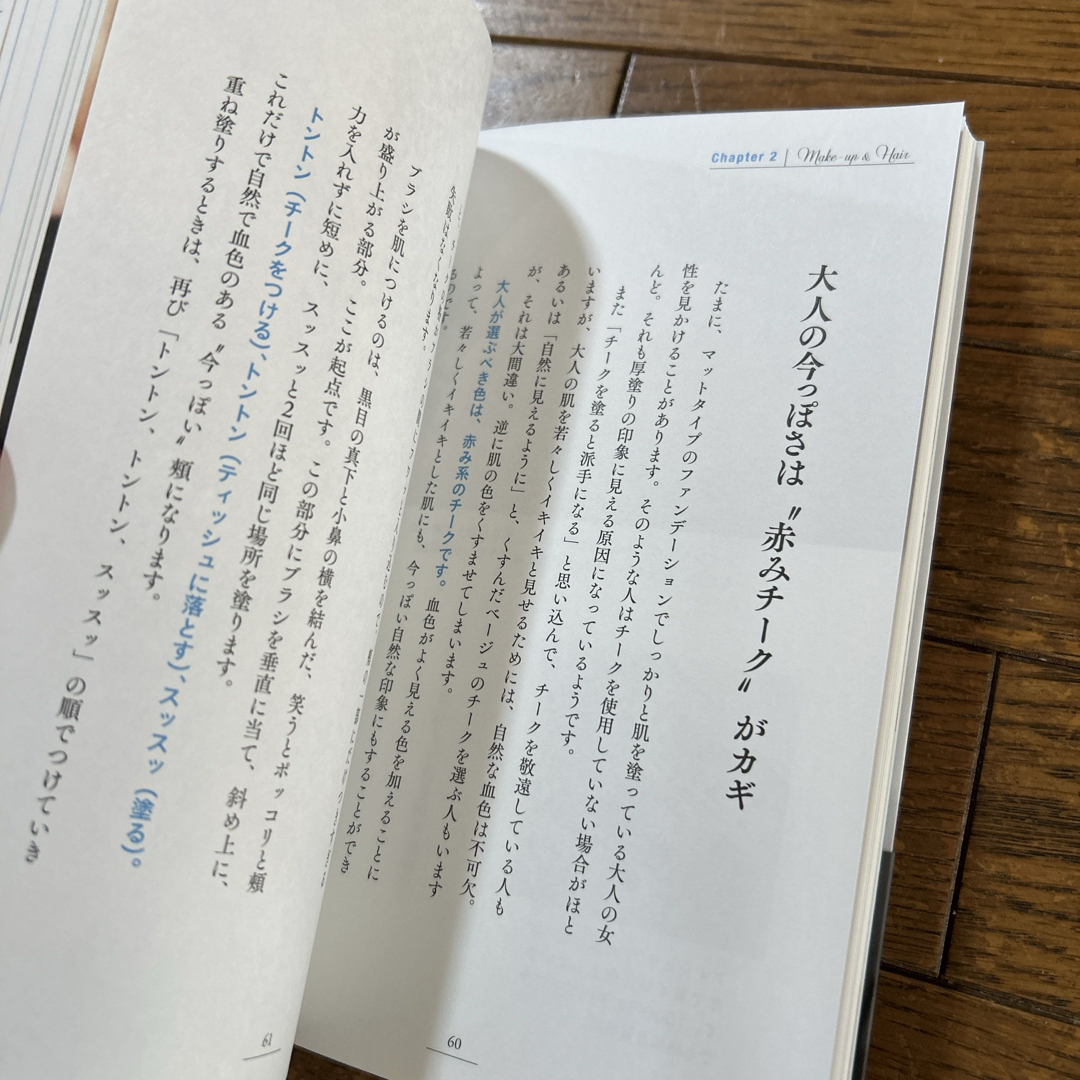 Chapter 2 | Make-up & Hair
大人の今っぽさは〝赤みチーク〟がカギ
たまに、マットタイプのファンデーションでしっかりと肌を塗っている大人の女
性を見かけることがあります。そのような人はチークを使用していない場合がほと
んど。それも厚塗りの印象に見える原因になっているようです。
また「チークを塗ると派手になる」と思い込んで、チークを敬遠している人も
いますが、大人の肌を若々しくイキイキと見せるためには、自然な血色は不可欠。
あるいは「自然に見えるように」と、くすんだベージュのチークを選ぶ人もいます
が、それは大間違い。逆に肌の色をくすませてしまいます。
大人が選ぶべき色は、赤み系のチークです。血色がよく見える色を加えることに
よって、若々しくイキイキとした肌にも、今っぽい自然な印象にもすることができ
るのです。
60
ブラシを肌につけるのは、黒目の真下と小鼻の横を結んだ、笑うとポッコリと頬
が盛り上がる部分。ここが起点です。この部分にブラシを垂直に当て、斜め上に、
力を入れずに短めに、スッスッと2回ほど同じ場所を塗ります。
トントン（チークをつける）、トントン（ティッシュに落とす）、スッスッ（塗る）。
これだけで自然で血色のある〝今っぽい〟頬になります。
重ね塗りするときは、再び「トントン、トントン、スッスッ」の順でつけていき
61